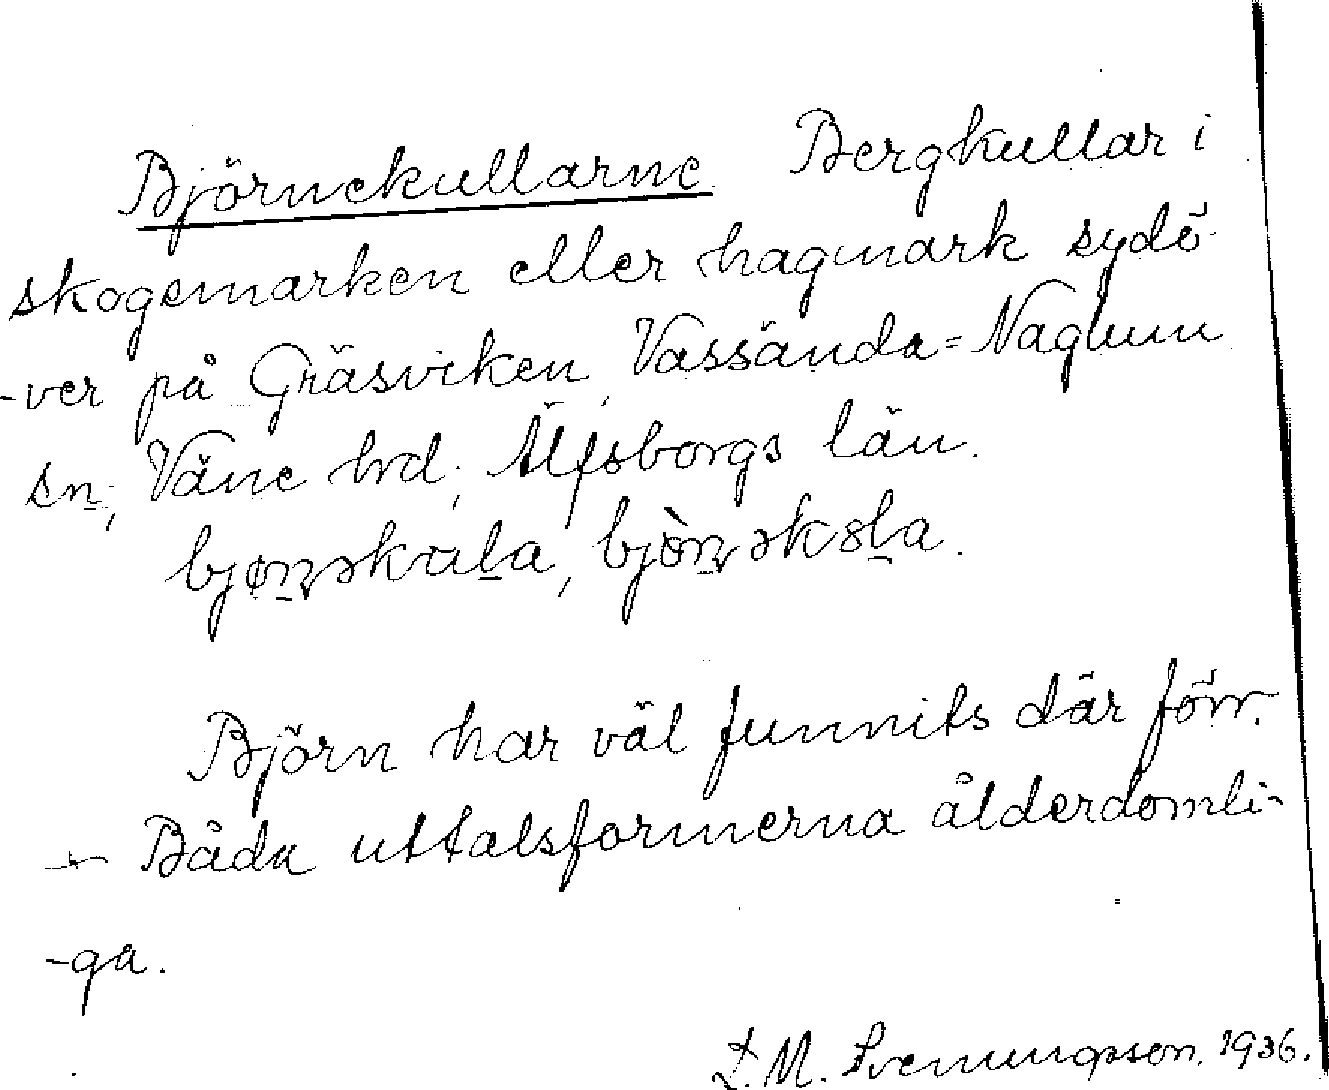 Björnekullarne Bergkullar i
skogsmarken eller hagmark sydö-
-ver på Gräsviken, Vassända=Naglum
sn, Väne hd, Älfsborgs län.
Björn har väl funnits där förr.
— Båda uttalsformerna ålderdomli-
-ga.
M. 1936.